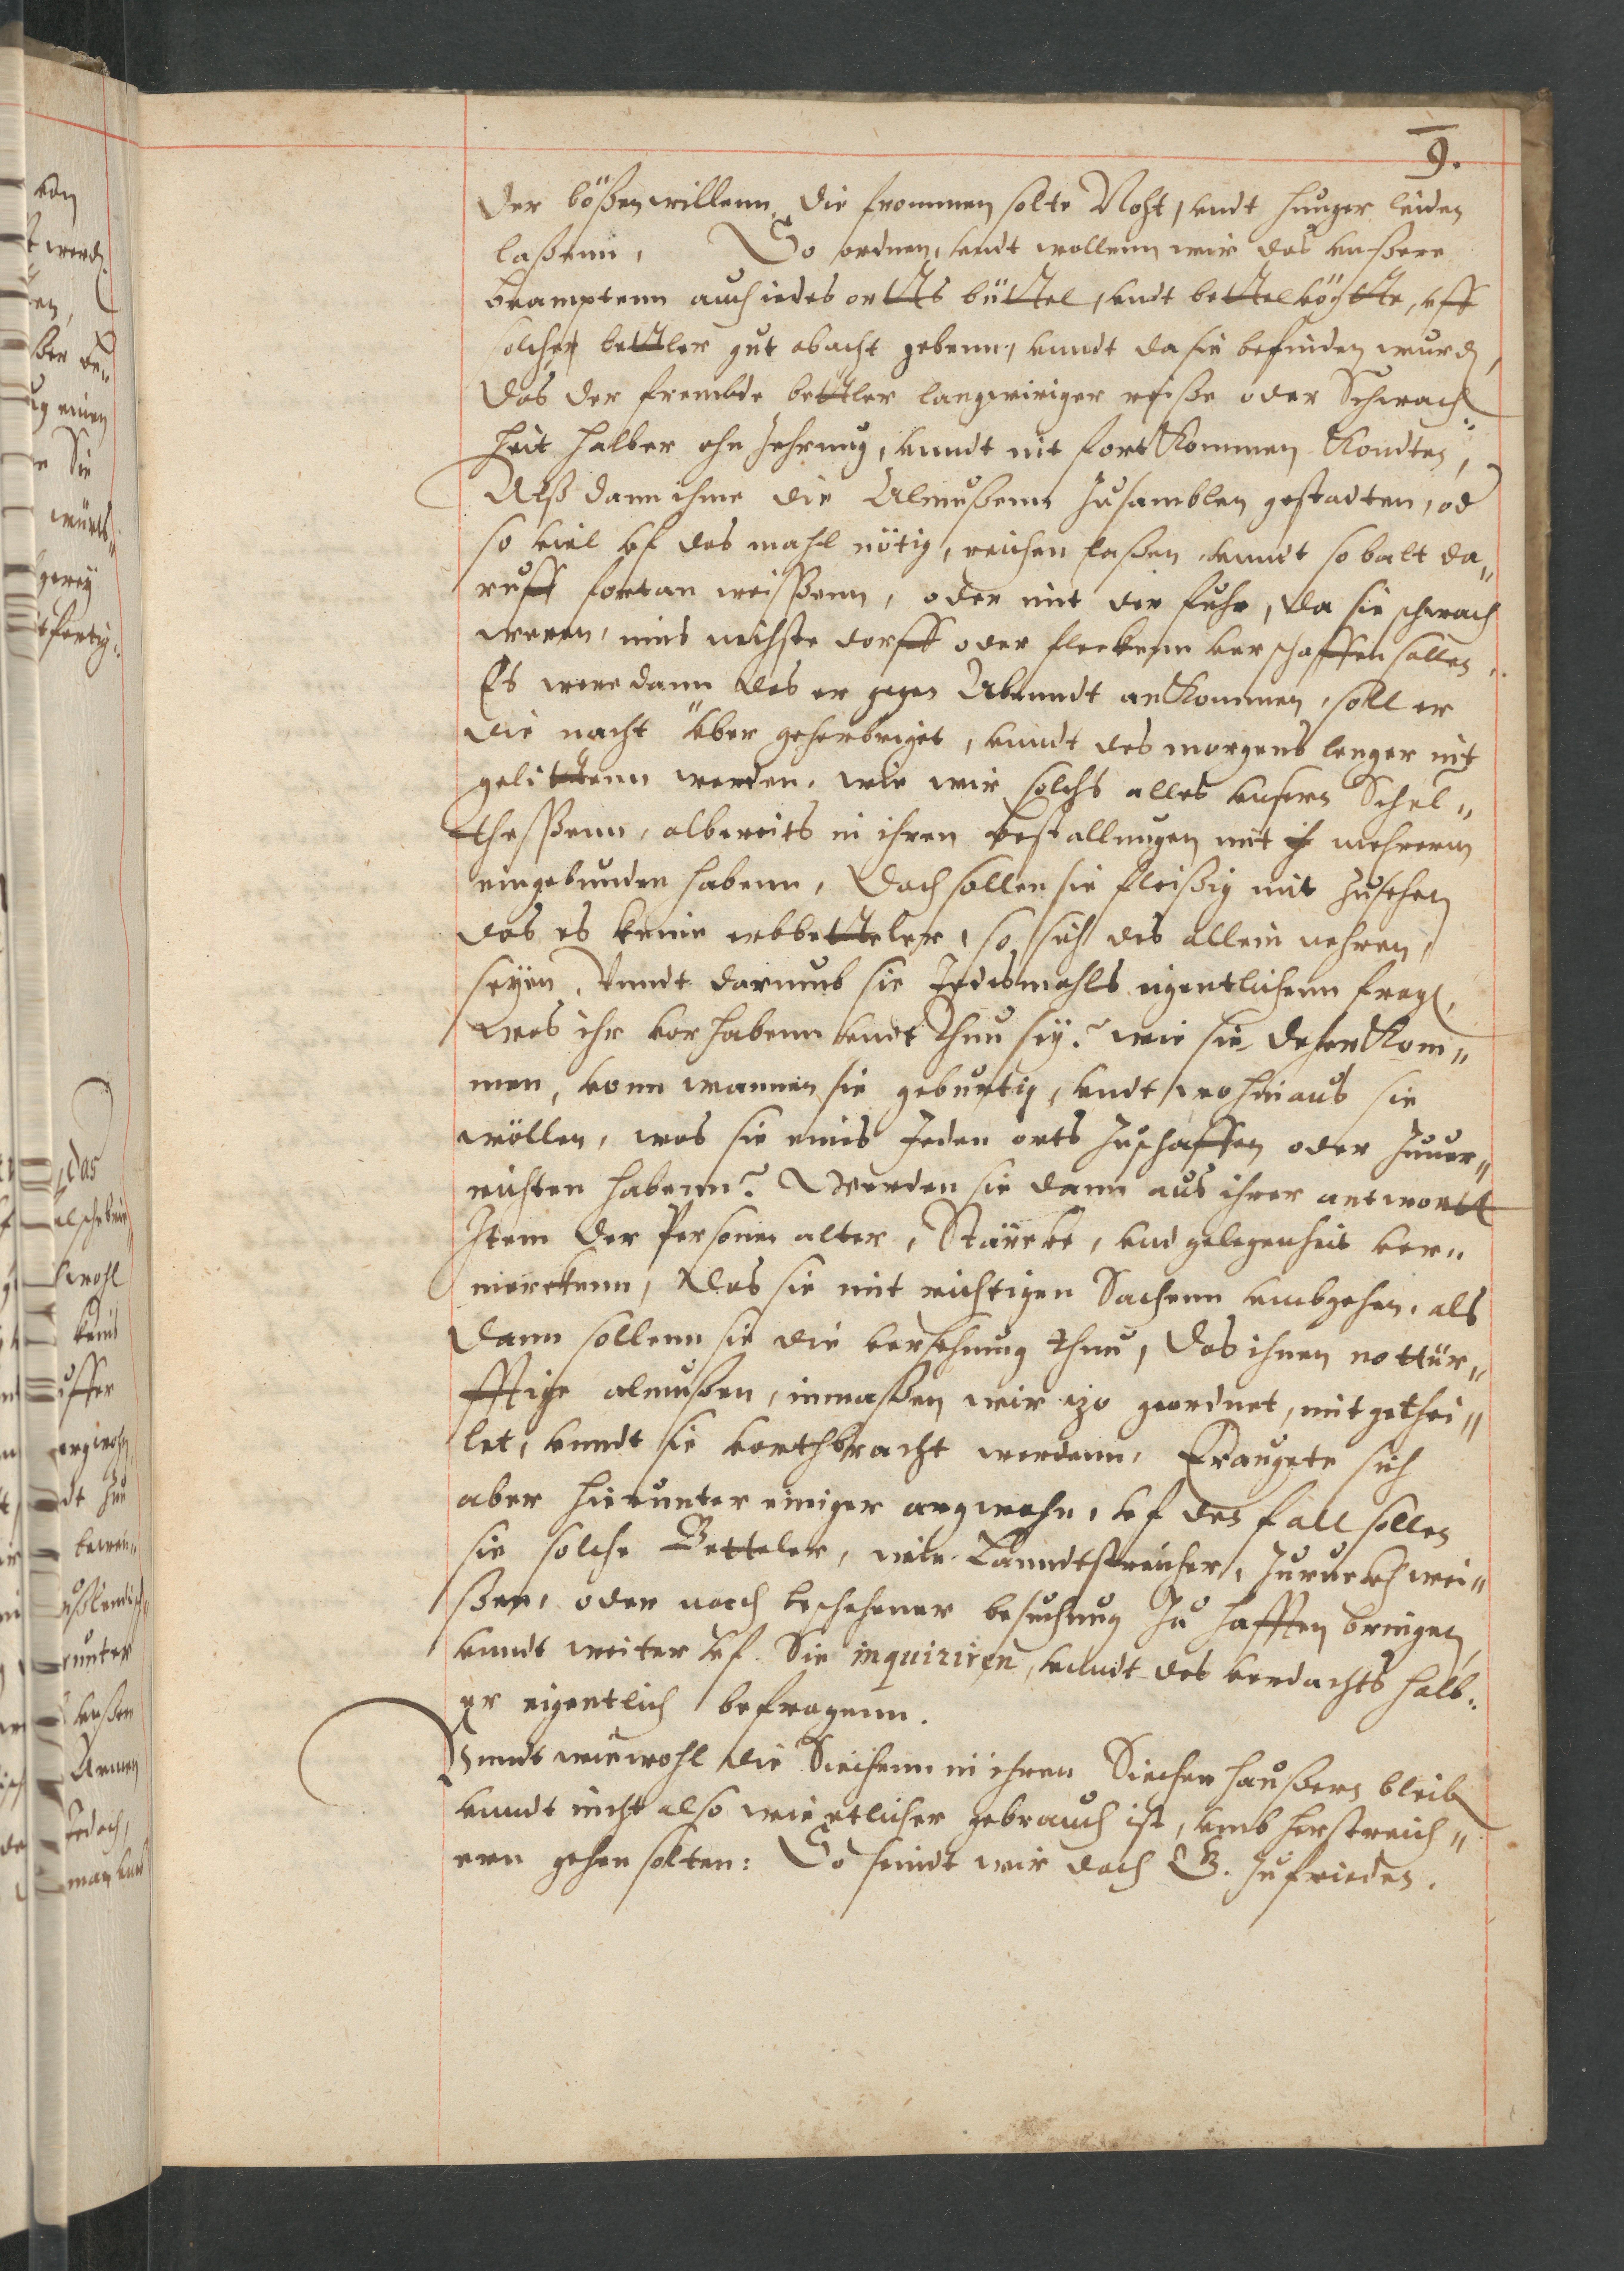 9.
der bößen willenn die frommen solte Noht, undt hunger leiden
laßenn, So ordnen, undt wollenn wir das unßere
beamptenn auch iedes ortts büttel, undt bettelvögtte, uff
solcher bettler gut obacht gebenn, unndt da sie befinden wurd,
das der frembde bettler langwiriger reiße oder Schwach„
heit halber ohn Zehrung, unndt nit fort kommen kondten,
Alß dann ihme die Almußenn Zusamblen gestadten, od
so viel uf das mahl nötig, reichen laßen unndt so balt da„
ruff fortan weissenn, oder mit der fuhr, da sie schwach
weren, uns nechste dorff oder fleckenn verschaffen sollen.
Es were dann das er gegen Abenndt ankommen, soll er
die nacht über geherbriget, unndt des morgens lenger nit
gelittenn werden, wie wir solchs alles unsern Schul„
thessenn, albereits in ihren bestallungen mit mehrerm
eingebunden habenn, Doch sollen sie fleißig mit Zusehen
das es keine erbbetteler, so sich des allein nehren,
seyen, Unndt darumb sie Jedesmahls eigentlichenn fragen,
was ihr vorhabenn undt thun sey? wie sie daher kom„
men, vonn wannen sie geburtig, undt wo hinaus sie
wöllen, was sie eines Jeden orts Zuschaffen oder Zuver„
richten habenn? Werden sie dann aus ihrer antwortt
Item der Personen alter, Stärcke, und gelegenheit ver„
merckenn, das sie mit richtigen Sachenn umbgehen, als
dann sollenn sie die versehnung thun, das ihnen nottür„
fftige almußen, inmaßen wir izo geordnet, mitgethei„
let, unndt sie vorthbracht werdenn, Eraugete sich
aber hierunter einiger argwohn, uf den fall sollen
sie solche Betteler, unndt Lanndtstreicher, Zuruckh wei„
ßen, oder nach beschehener besuchung Zu hafften bringen,
unndt weiter uf Sie inquiriren, unndt des verdachts halb„
er eigentlich befragenn.
Unndt wiewohl die Siechenn in ihren Siechen haußern bleiben
unndt nicht also wie etlicher gebrauch ist, umb herstreich„
enn gehen solten: So seindt wir doch G. Zufrieden.